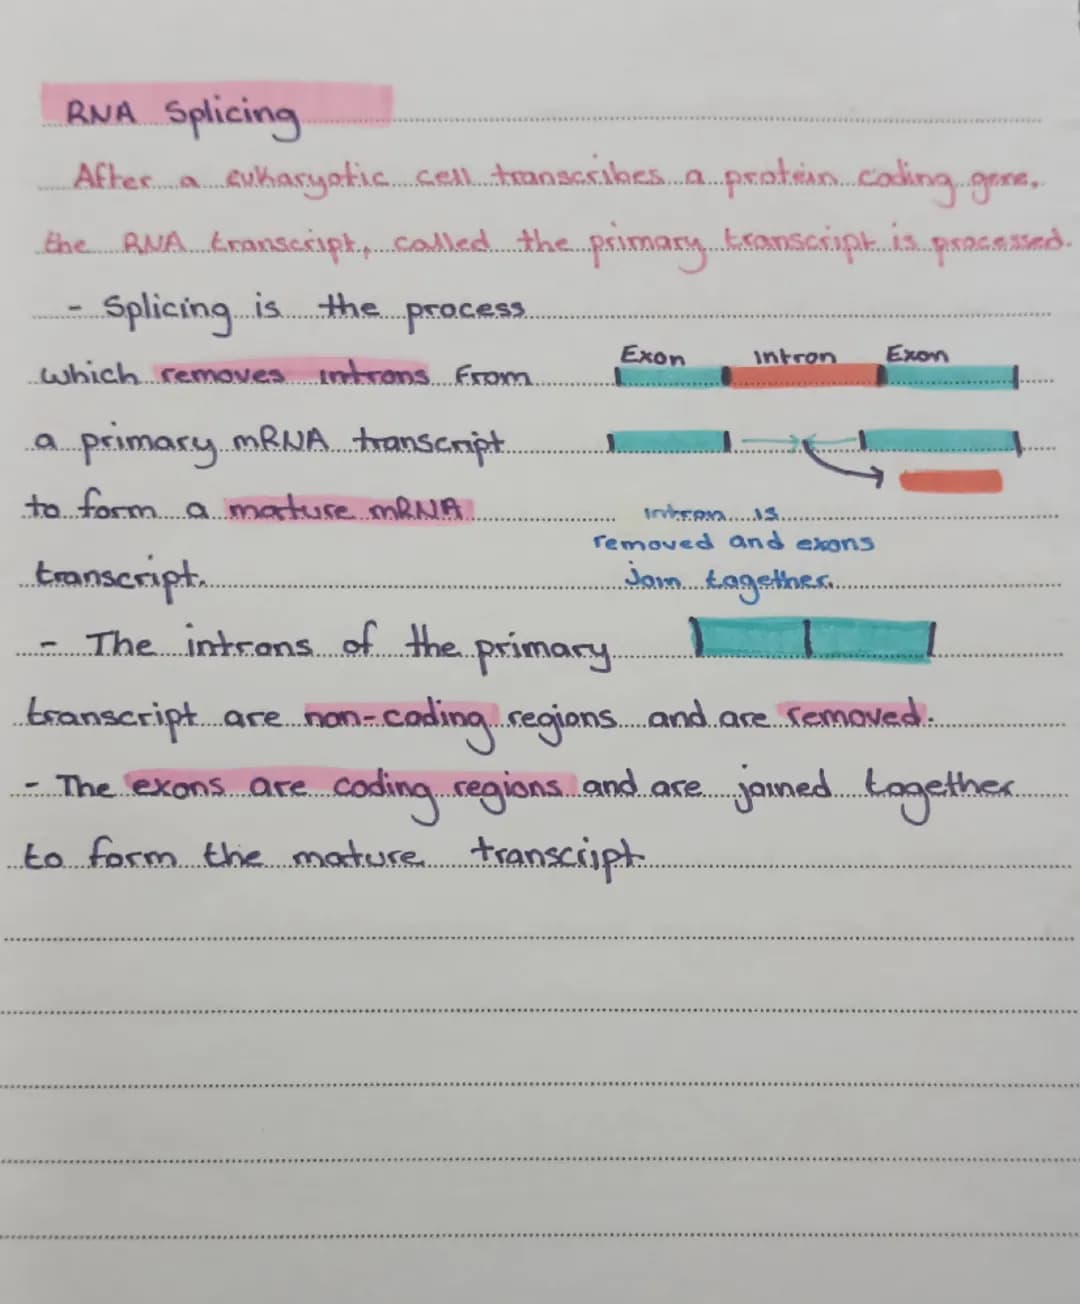 RNA Splicing
After a eukaryotic cell transcribes a protein coding gene,
the RNA transcript, called the primary transcript is processed.
- Splicing is the process
which removes introns from
a primary mRNA transcript
to form a mature mRNA
transcript.
Exon Intron Exon
intron is
removed and exons
Join together.
- The introns of the primary
transcript are non-coding regions and are removed.
- The exons are coding regions and are joined together
to form the mature transcript